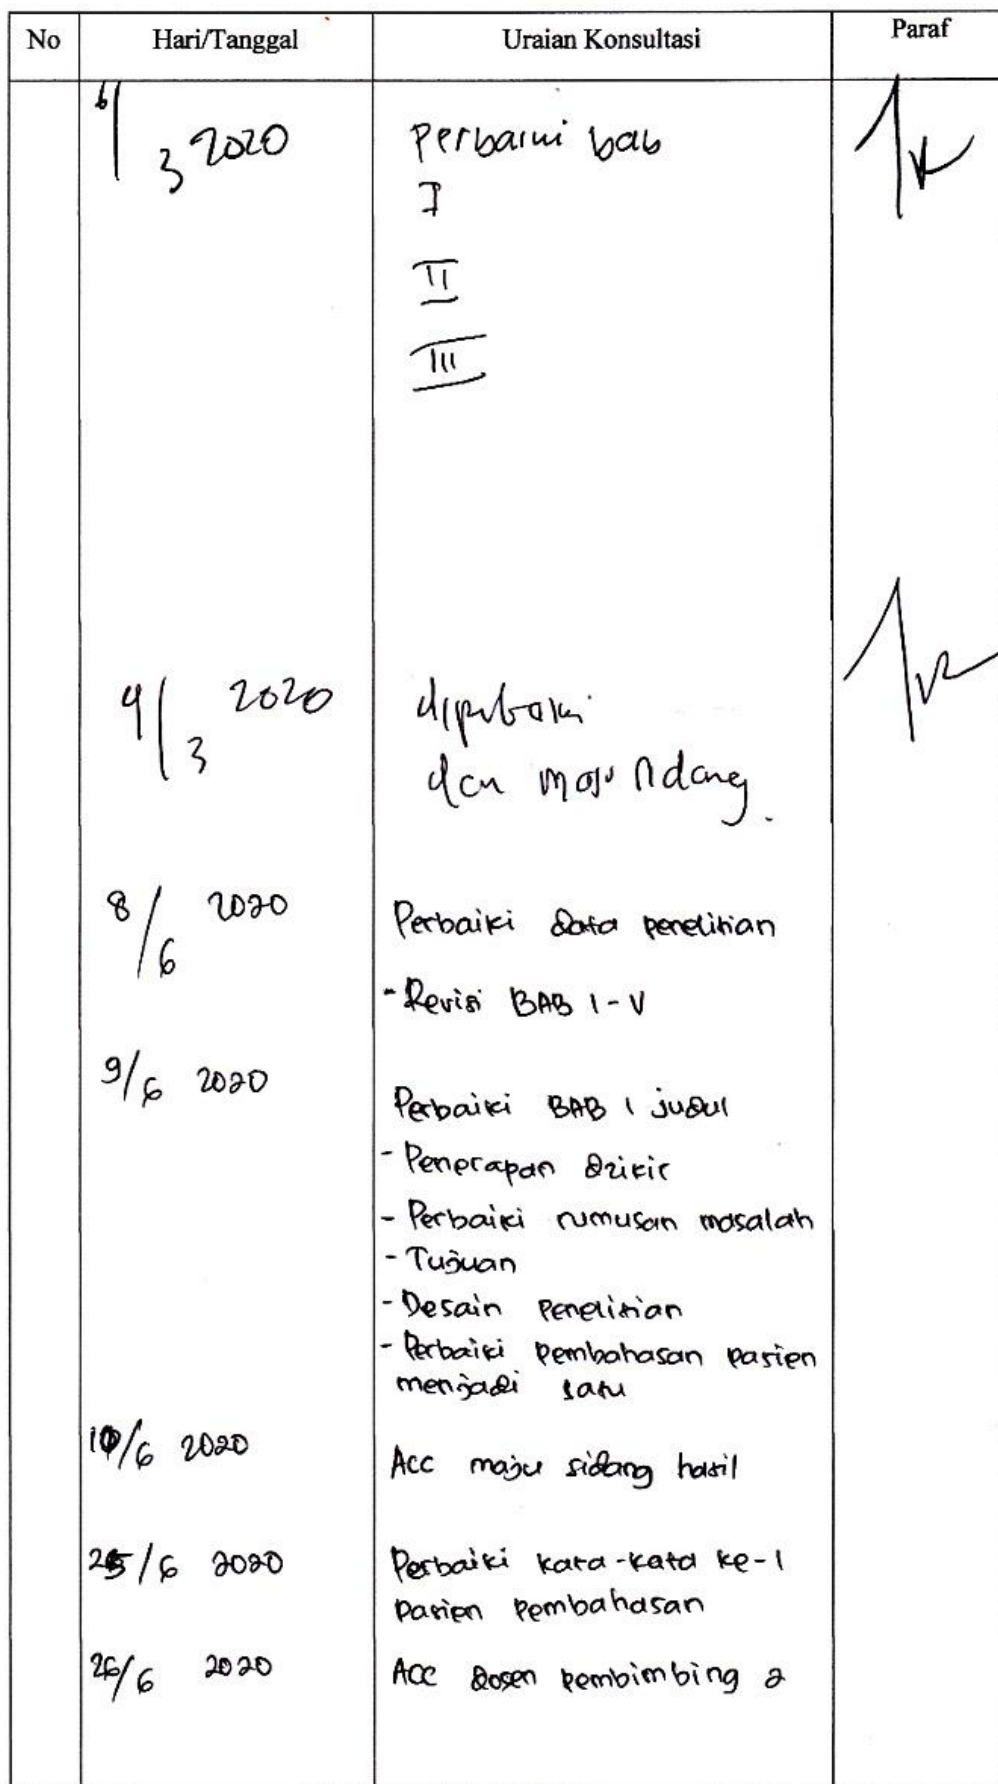 No Hari/Tanggal Uraian Konsultasi Paraf
6/3 2020 Perbaiki bab
I
II
III
9/3 2020 diperbaiki
dan maju sidang.
8/6 2020 Perbaiki data penelitian
- Revisi BAB 1 - V
9/6 2020 Perbaiki BAB 1 judul
- Penerapan dzikir
- Perbaiki rumusan masalah
- Tujuan
- Desain penelitian
- Perbaiki pembahasan pasien
menjadi satu
10/6 2020 Acc maju sidang hasil
25/6 2020 Perbaiki kata-kata ke-1
pasien pembahasan
26/6 2020 ACC dosen pembimbing 2